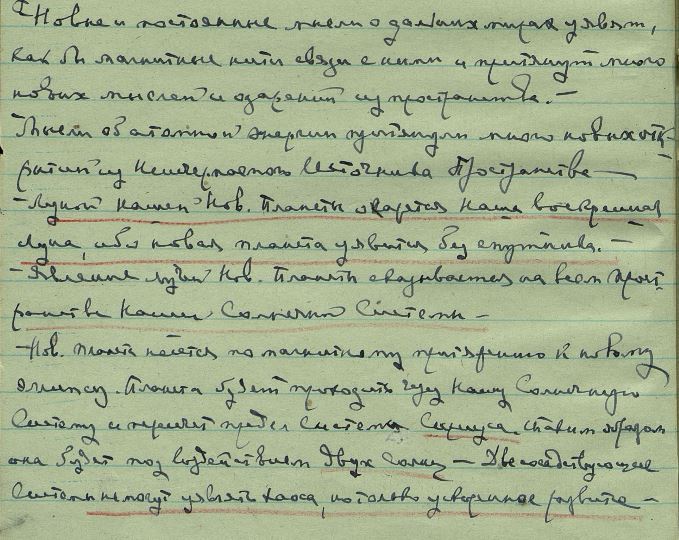 Новые и постоянные мысли о дальних мирах уявят,
как бы магнитные нити связи с ними и притянут много
новых мыслей и озарений из пространства. —
Мысли об атомной энергии притянули много новых отк-
рытий из Неисчерпаемого Источника Пространства —
— Луной нашей Нов. Планеты окажется наша воскресшая
Луна, ибо новая планета уявится без спутника. —
— Явление лучей Нов. Планеты сказывается на всем прост-
ранстве Нашей Солнечной Системы —
— Нов. планета несется по магнитному притяжению к новому
эллипсу. Планета будет проходить через Нашу Солнечную
Систему и пересечет предел Системы Сириуса. Таким образом
она будет под воздействием двух Солнц — Две соседствующие
Системы не могут уявлять хаоса, но только ускоренное развитие —